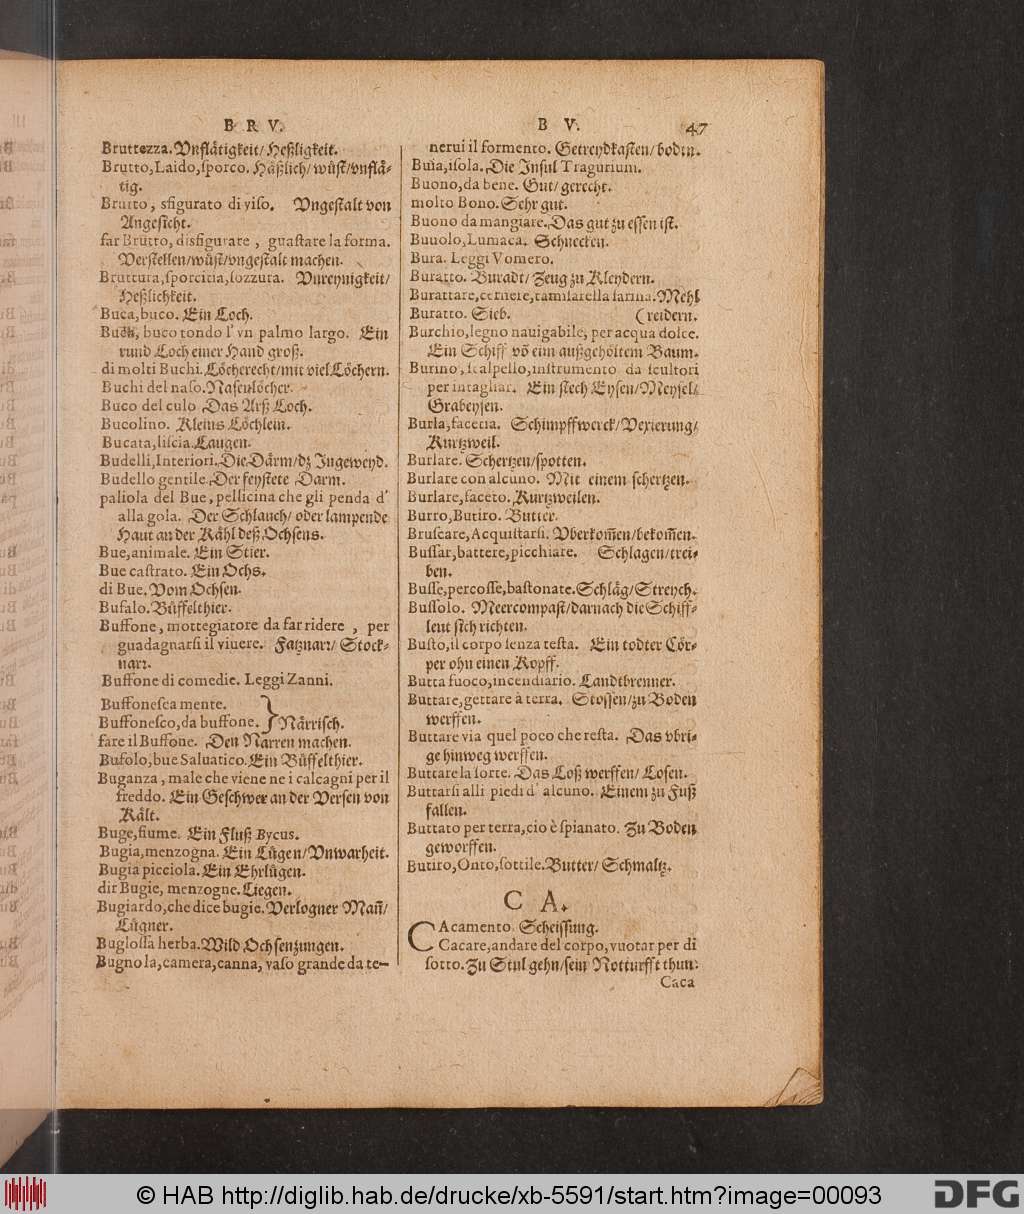 B R V.
Bruttezza. Vnflåtigkeit/ Heßligkeit.
Brutto, Laido, ſporco. Håßlich/ wůſt/ vnflå-
tig.
Brutto, sfigurato di viſo. Vngeſtalt von
Angeſicht.
far Brutto, disfigurare, guaſtare la forma.
Verſtellen/ wůſt/ vngeſtalt machen.
Bruttura, ſporcitia, ſozzura. Vnreynigkeit/
Heßlichkeit.
Buca, buco. Ein Loch.
Buca, buco tondo l' vn palmo largo. Ein
rund Loch einer Hand groß.
di molti Buchi. Lőcherecht/ mit viel Lőchern.
Buchi del naſo. Naſenlőcher.
Buco del culo Das Arß Loch.
Bucolino. Kleins Lőchlein.
Bucata, liſcia. Laugen.
Budelli, Interiori. Die Dårm/ dz Ingeweyd.
Budello gentile. Der feyſtete Darm.
paliola del Bue, pellicina che gli penda d'
alla gola. Der Schlauch/ oder lampende
Haut an der Kåhl deß Ochſens.
Bue, animale. Ein Stier.
Bue caſtrato. Ein Ochs.
di Bue. Vom Ochſen.
Bufalo. Bůffelthier.
Buffone, mottegiatore da far ridere, per
guadagnarſi il viuere. Fatznarr/ Stock-
narr.
Buffone di comedie. Leggi Zanni.
Buffoneſca mente.
Buffoneſco, da buffone. } Nårriſch.
fare il Buffone. Den Narren machen.
Bufolo, bue Saluatico. Ein Bůffelthier.
Buganza, male che viene ne i calcagni per il
freddo. Ein Geſchwer an der Verſen von
Kålt.
Buge, fiume. Ein Fluß Bycus.
Bugia, menzogna. Ein Lůgen/ Vnwarheit.
Bugia picciola. Ein Ehrlůgen.
dir Bugie, menzogne. Liegen.
Bugiardo, che dice bugie. Verlogner Mañ/
Lůgner.
Bugloſſa herba. Wild Ochſenzungen.
Bugnola, camera, canna, vaſo grande da te-
B V. 47
nerui il formento. Getreydkaſten/ boden.
Buia, iſola. Die Inſul Tragurium.
Buono, da bene. Gut/ gerecht.
molto Bono. Sehr gut.
Buono da mangiare. Das gut zu eſſen iſt.
Buuolo, Lumaca. Schnecken.
Bura. Leggi Vomero.
Buratto. Buradt/ Zeug zu Kleydern.
Burattare, cernere, tamiſare lla farina. Mehl
Buratto. Sieb. (reidern.
Burchio, legno nauigabile, per acqua dolce.
Ein Schiff võ eim außgehőltem Baum.
Burino, ſcalpello, inſtrumento da ſcultori
per intagliar. Ein ſtech Eyſen/ Meyſel/
Grabeyſen.
Burla, facetia. Schimpffwerck/ Vexierung/
Kurtzweil.
Burlare. Schertzen/ ſpotten.
Burlare con alcuno. Mit einem ſchertzen.
Burlare, faceto. Kurtzweilen.
Burro, Butiro. Butter.
Bruſcare, Acquiſtarſi. Vberkom̃en/ bekom̃en.
Buſſar, battere, picchiare. Schlagen/ trei-
ben.
Buſſe, percoſſe, baſtonate. Schlåg/ Streych.
Buſſolo. Meercompaſt/ darnach die Schiff-
leut ſich richten.
Buſto, il corpo ſenza teſta. Ein todter Cőr-
per ohn einen Kopff.
Butta fuoco, incendiario. Landtbrenner.
Buttare, gettare à terra. Stoſſen/ zu Boden
werffen.
Buttare via quel poco che reſta. Das vbri-
ge hinweg werffen.
Buttare la ſorte. Das Loß werffen/ Loſen.
Buttarſi alli piedi d' alcuno. Einem zu Fuß
fallen.
Buttato per terra, cio è ſpianato. Zu Boden
geworffen.
Butiro, Onto, ſottile. Butter/ Schmaltz.
C A.
CAcamento. Scheiſſung.
Cacare, andare del corpo, vuotar per di
ſotto. Zu Stul gehn/ ſein Notturfft thun.
Caca
© HAB http://diglib.hab.de/drucke/xb-5591/start.htm?image=00093
DFG